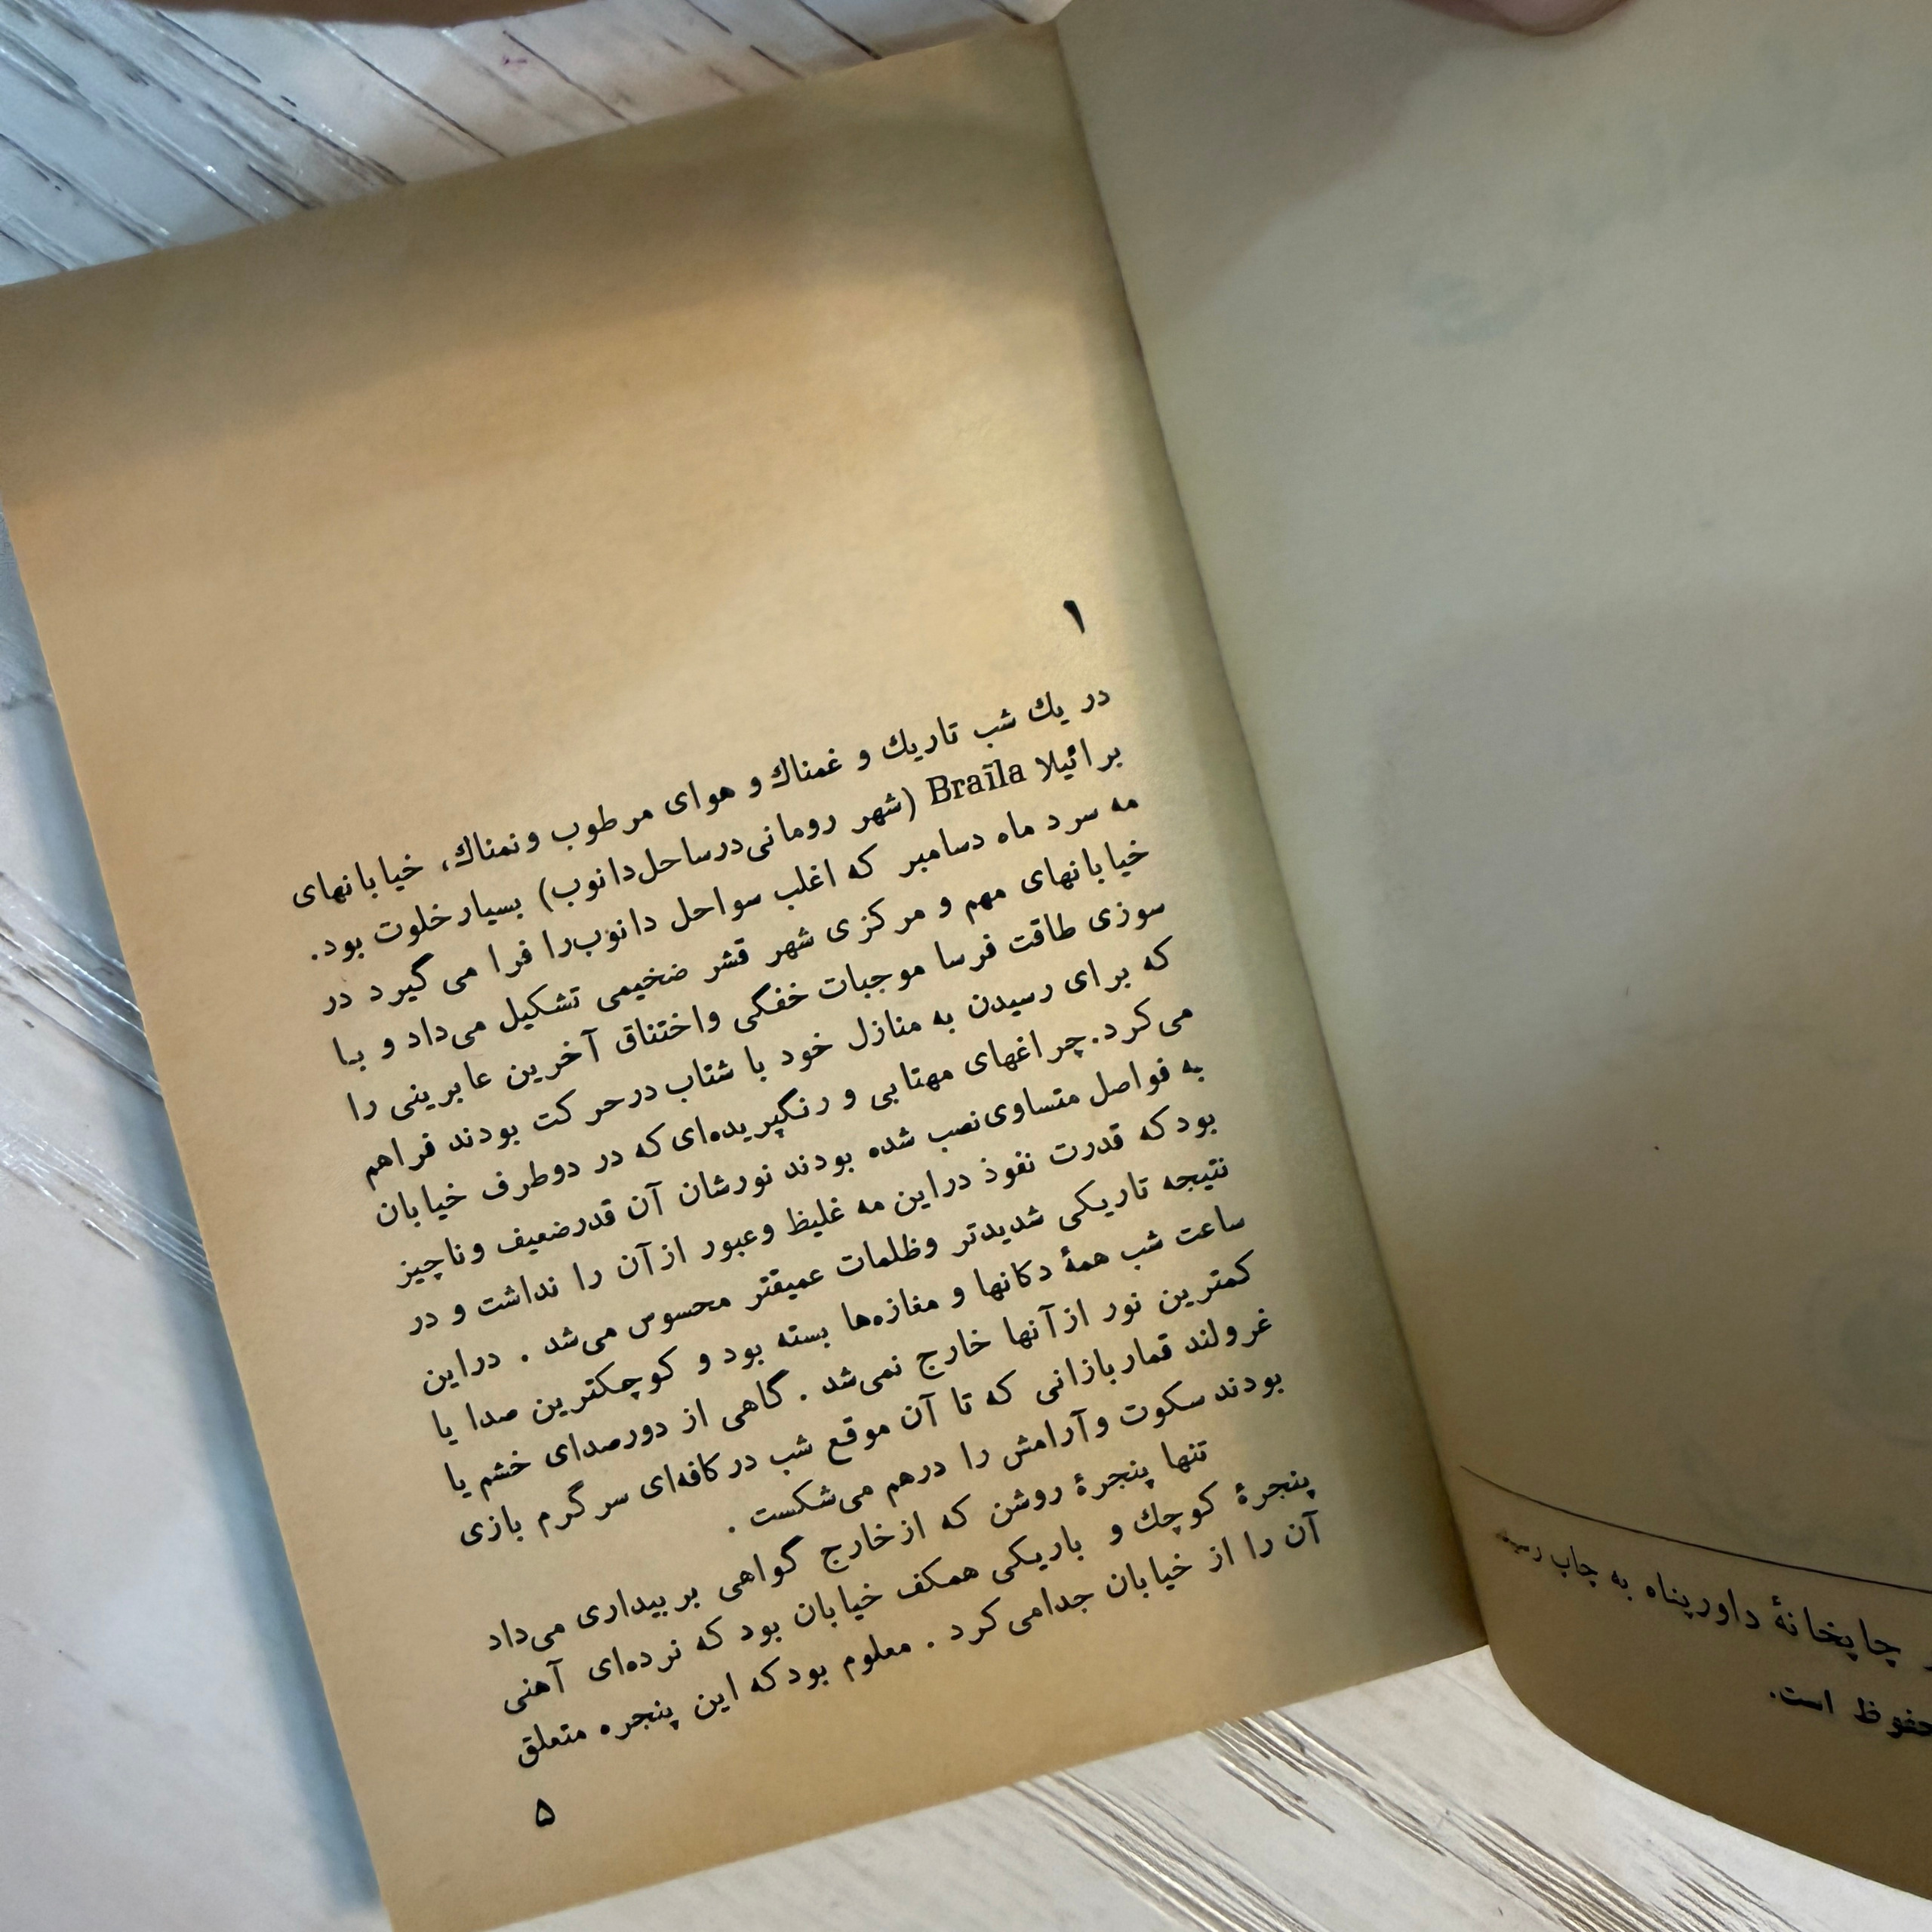 ۱
در يك شب تاريك و غمناك و هوای مرطوب ونمناك، خيابانهای
برائيلا Braïla (شهر رومانی‌درساحل‌دانوب) بسيارخلوت بود.
مه سرد ماه دسامبر كه اغلب سواحل دانوب‌را فرا می گيرد در
خيابانهای مهم و مركزی شهر قشر ضخيمی تشكيل می‌داد و با
سوزی طاقت فرسا موجبات خفگی واختناق آخرين عابرينی را
كه برای رسيدن به منازل خود با شتاب درحركت بودند فراهم
می‌كرد. چراغهای مهتابی و رنگپريده‌ای كه در دوطرف خيابان
به فواصل متساوی‌نصب شده بودند نورشان آن قدرضعيف وناچيز
بودكه قدرت نفوذ دراين مه غليظ وعبور ازآن را نداشت و در
نتيجه تاريكی شديدتر وظلمات عميقتر محسوس می‌شد . دراين
ساعت شب همهٔ دكانها و مغازه‌ها بسته بود و كوچكترين صدا يا
كمترين نور ازآنها خارج نمی‌شد . گاهی از دورصدای خشم يا
غرولند قماربازانی كه تا آن موقع شب دركافه‌ای سرگرم بازی
بودند سكوت وآرامش را درهم می‌شكست .
تنها پنجرهٔ روشن كه ازخارج گواهی بربيداری می‌داد
پنجرهٔ كوچك و باريكی همكف خيابان بود كه نرده‌ای آهنی
آن را از خيابان جدامی‌كرد . معلوم بودكه اين پنجره متعلق
۵
چاپخانهٔ داورپناه به چاپ رسيد
است.